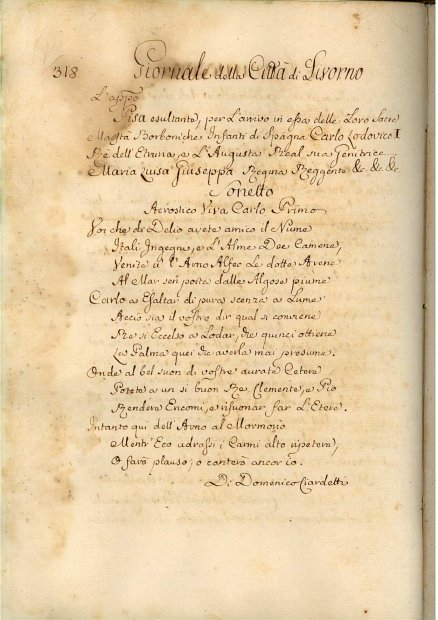 318 Giornale della Città di Livorno
L'appo
Pisa esultante, per L'arrivo in essa delle Loro Sacre
Maestà Borboniche Infanti di Spagna Carlo Lodovico I
Rè dell'Etruria, e L'Augusta Real sua Genitrice
Maria Luisa Giuseppa Regina Reggente &c. &c. &c.
Sonetto
Acrostico Viva Carlo Primo
Voi che di Delio avete amico il Nume
Itali Ingegni, e L'Alme Dee Camene,
Venite u' l'Arno Alfeo Le dotte Avene
Al Mar sen porta dalle Algose piume
Carlo a Esaltar di pura scenza a Lume
Acciò sia il vostro dir qual si conviene
Re sì Eccelso a Lodar, che quinci ottiene
La Palma quei che averla mai presume.
Onde al bel suon di vostre aurate Cetere
Potete a un sì buon Re, Clemente, e Pio
Rendere Encomi, e risuonar far L'Etere.
Intanto qui dell'Arno al Mormorio
Mentr'Eco udrassi i Carmi alto ripetere,
O farò plauso, o canterò ancor io.
Di Domenico Ciardetti